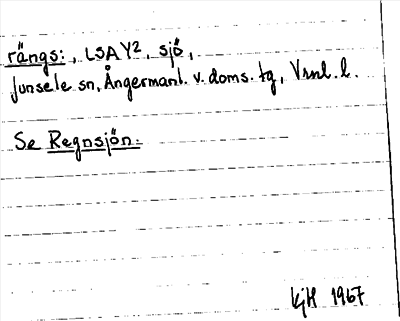 rängs:, LSA Y2, sjö,
Junsele sn, Ångermanl. v. doms. tg, Vrnl. l.
Se Regnsjön.
KjH 1967